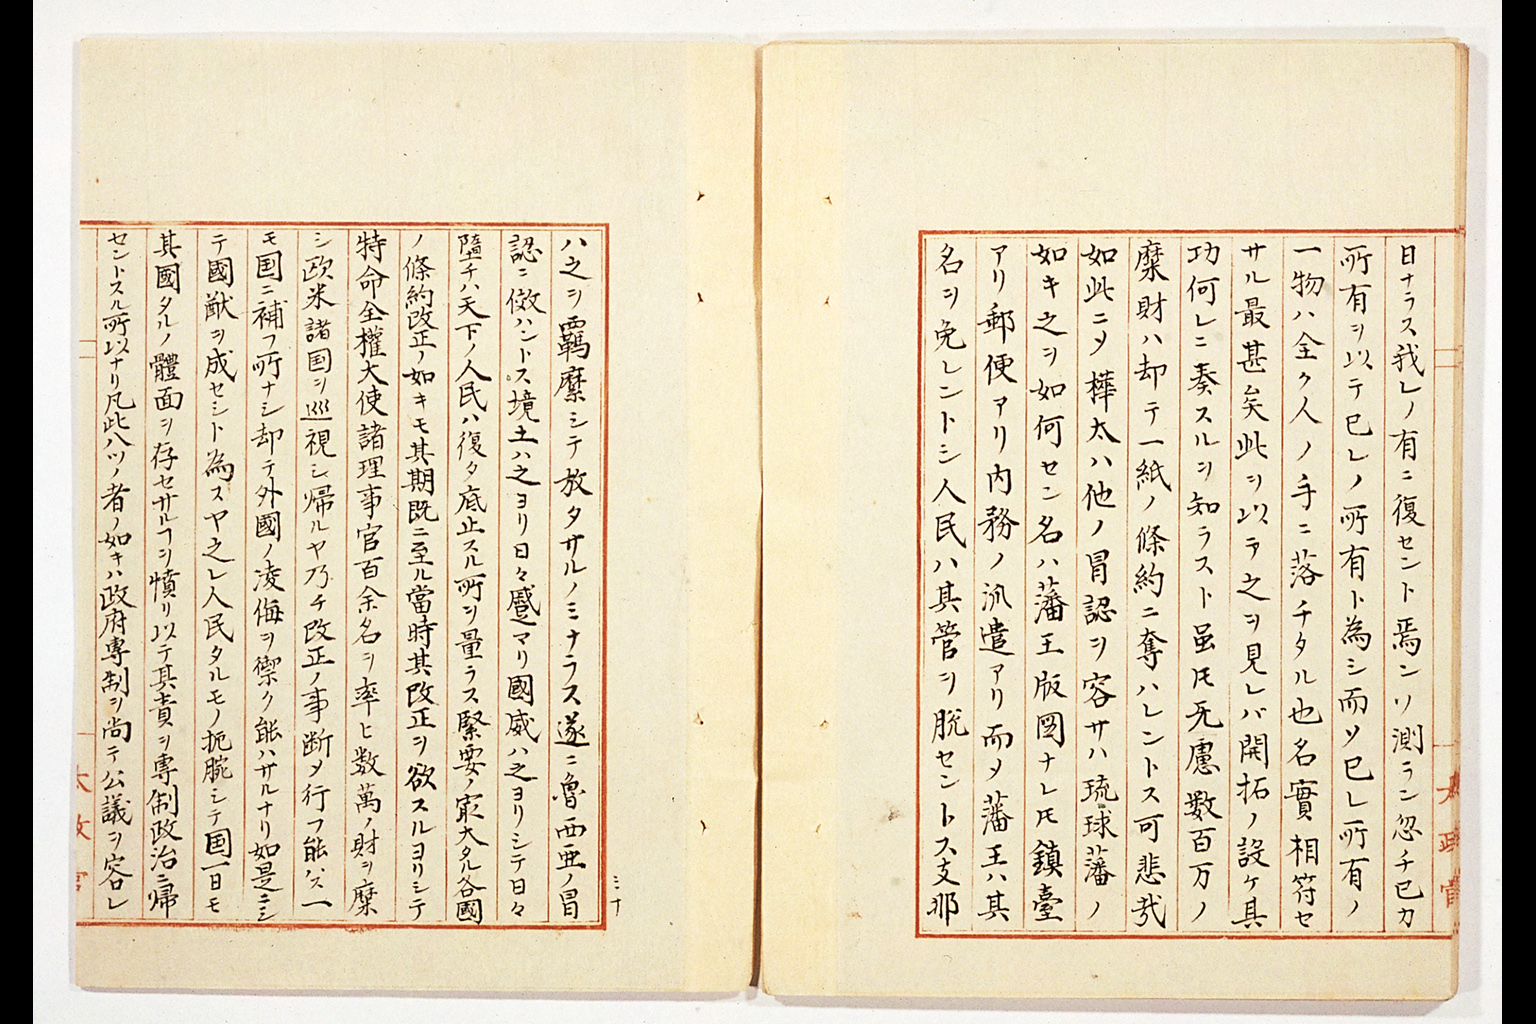 日ナラス我レノ有ニ復セント焉ンソ測ラン忽チ已カ
所有ヲ以テ已レノ所有ト為シ而ソ已レ所有ノ
一物ハ全ク人ノ手ニ落チタル也名實相符セ
サル最甚矣此ヲ以テ之ヲ見レバ開拓ノ設ケ其
功何レニ奏スルヲ知ラスト虽𪜈无慮数百万ノ
糜財ハ却テ一紙ノ條約ニ奪ハレントス可悲哉
如此ニメ樺太ハ他ノ冒認ヲ容サハ琉球藩ノ
如キ之ヲ如何セン名ハ藩王版圖ナレ𪜈鎮臺
アリ郵便アリ内務ノ派遣アリ而メ藩王ハ其
名ヲ免レントシ人民ハ其管ヲ脱セントス支那
ハ之ヲ羈縻シテ放タサルノミナラス遂ニ魯西亜ノ冒
認ニ傚ハントス境土ハ之ヨリ日々蹙マリ國威ハ之ヨリシテ日々
墮チハ天下ノ人民ハ復タ底止スル所ヲ量ラス緊要ノ㝡大タル各國
ノ條約改正ノ如キモ其期既ニ至ル當時其改正ヲ欲スルヨリシテ
特命全權大使諸理事官百余名ヲ率ヒ数萬ノ財ヲ糜
シ欧米諸国ヲ巡視シ帰ルヤ乃チ改正ノ事断メ行フ能ハス一
モ国ニ補フ所ナシ却テ外國ノ凌侮ヲ禦ク能ハサルナリ如是ニシ
テ國猷ヲ成セシト為スヤ之レ人民タルモノ扼腕シテ国一日モ
其國タルノ體面ヲ存セサルヿヲ憤リ以テ其責ヲ專制政治ニ帰
セントスル所以ナリ凡此八ツノ者ノ如キハ政府専制ヲ尚テ公議ヲ容レ
三十
太政官
太政官